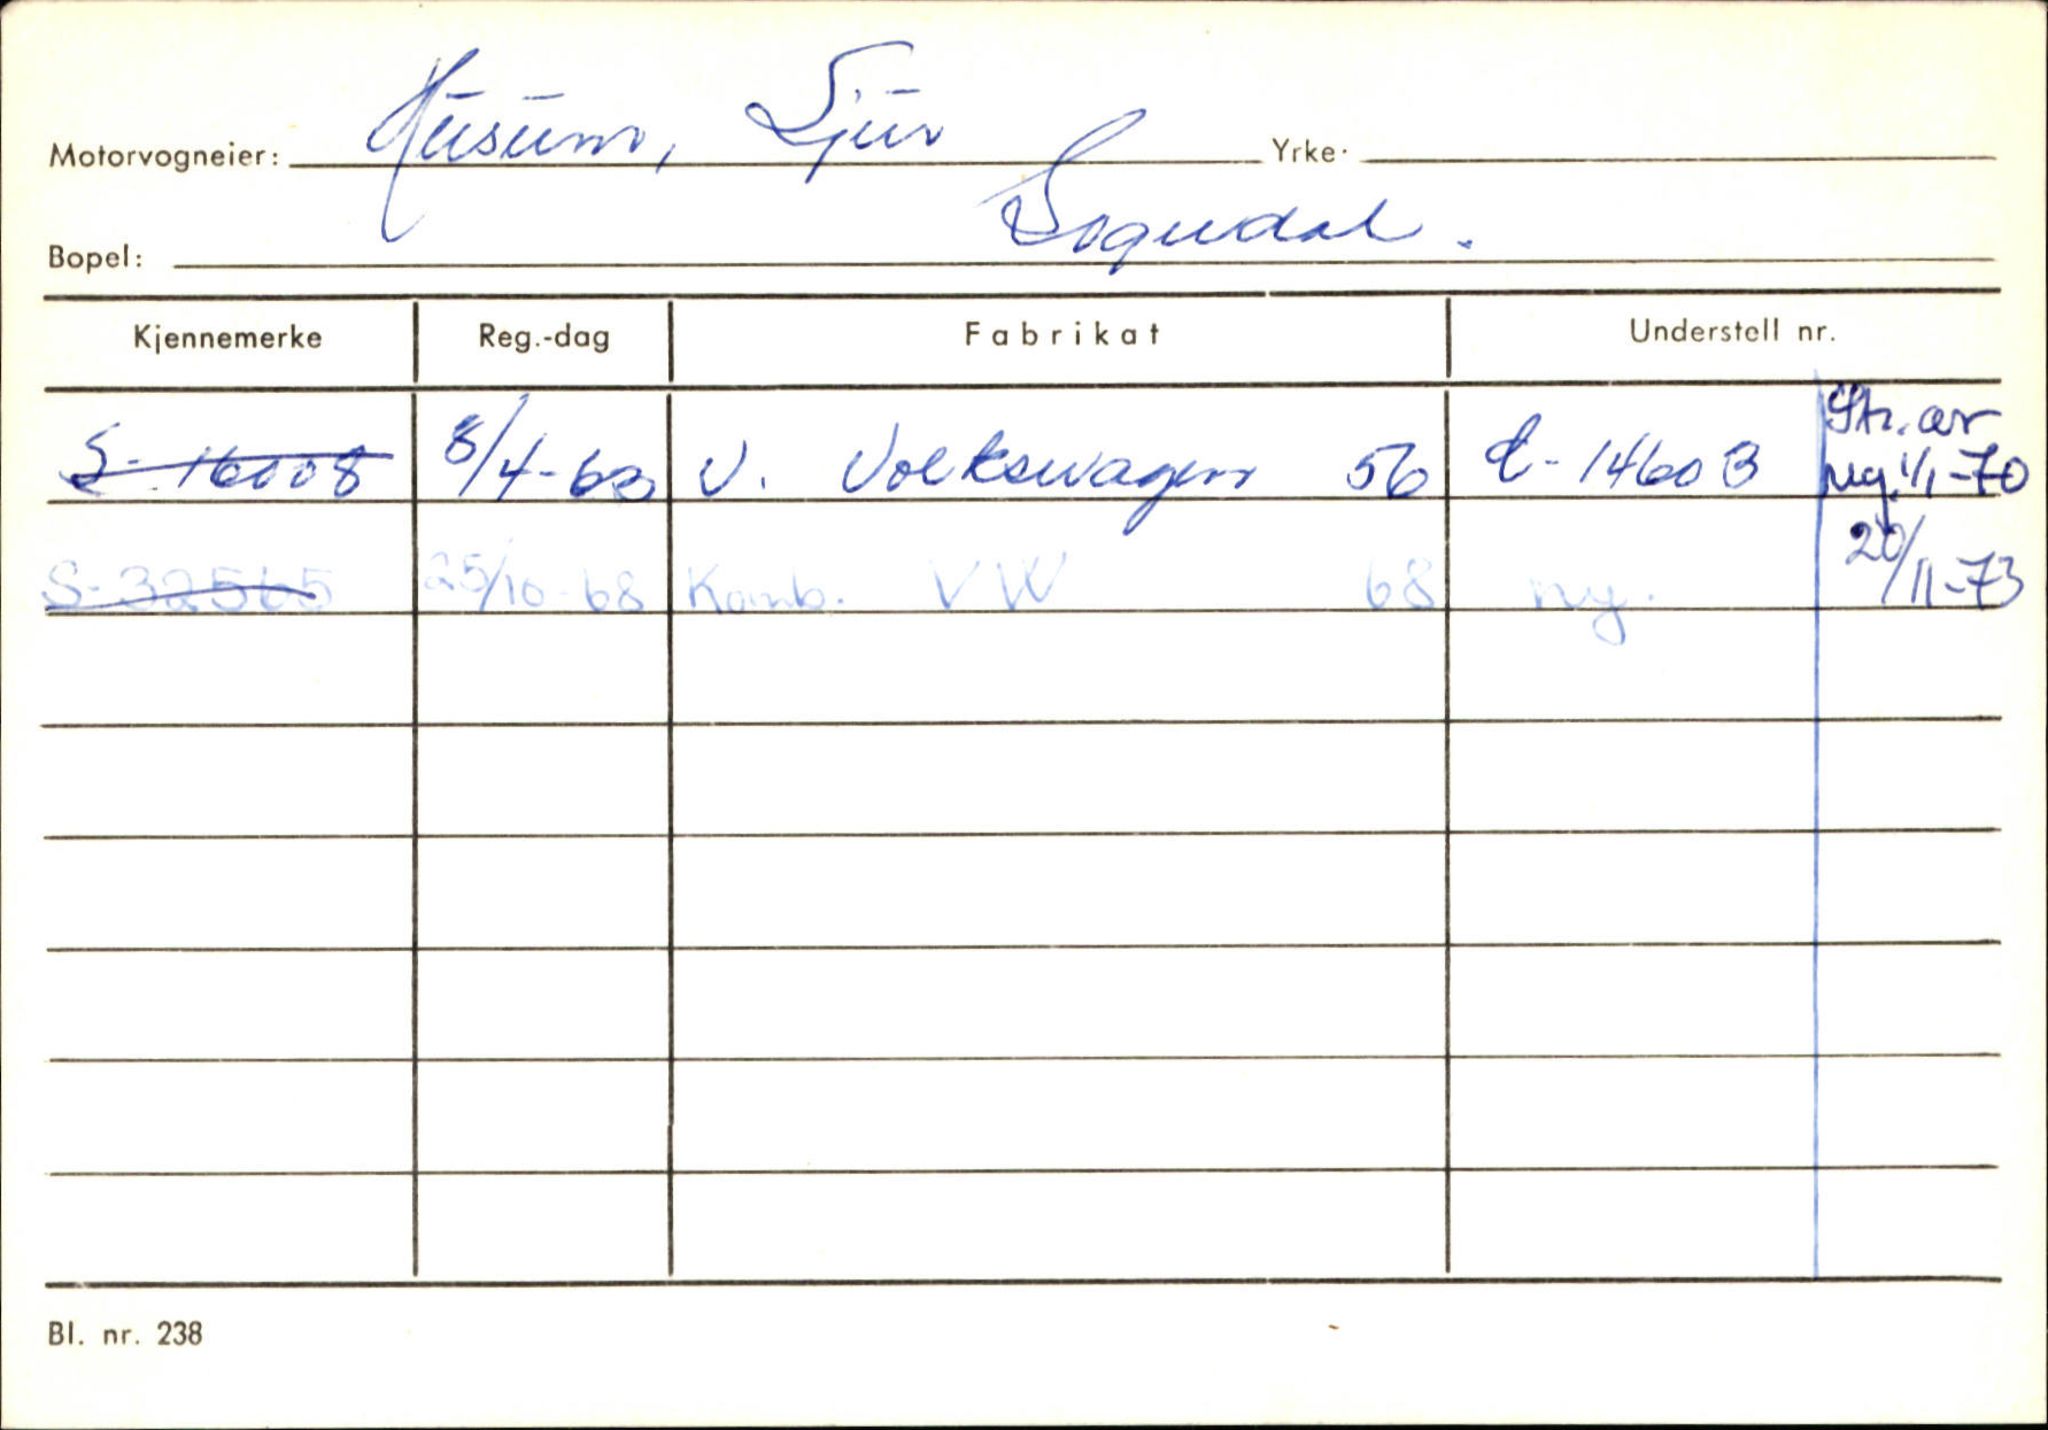 Motorvogneier: Husum, Sjur Yrke.
Bopel: Sogndal.
Kjennemerke Reg.-dag Fabrikat Understell nr.
S-16008 8/4-60 V. Volkswagen 56 L-14603 Str. av reg. 1/1-70
S-32565 25/10-68 Komb. VW 68 ny. 20/11-73
Bl. nr. 238